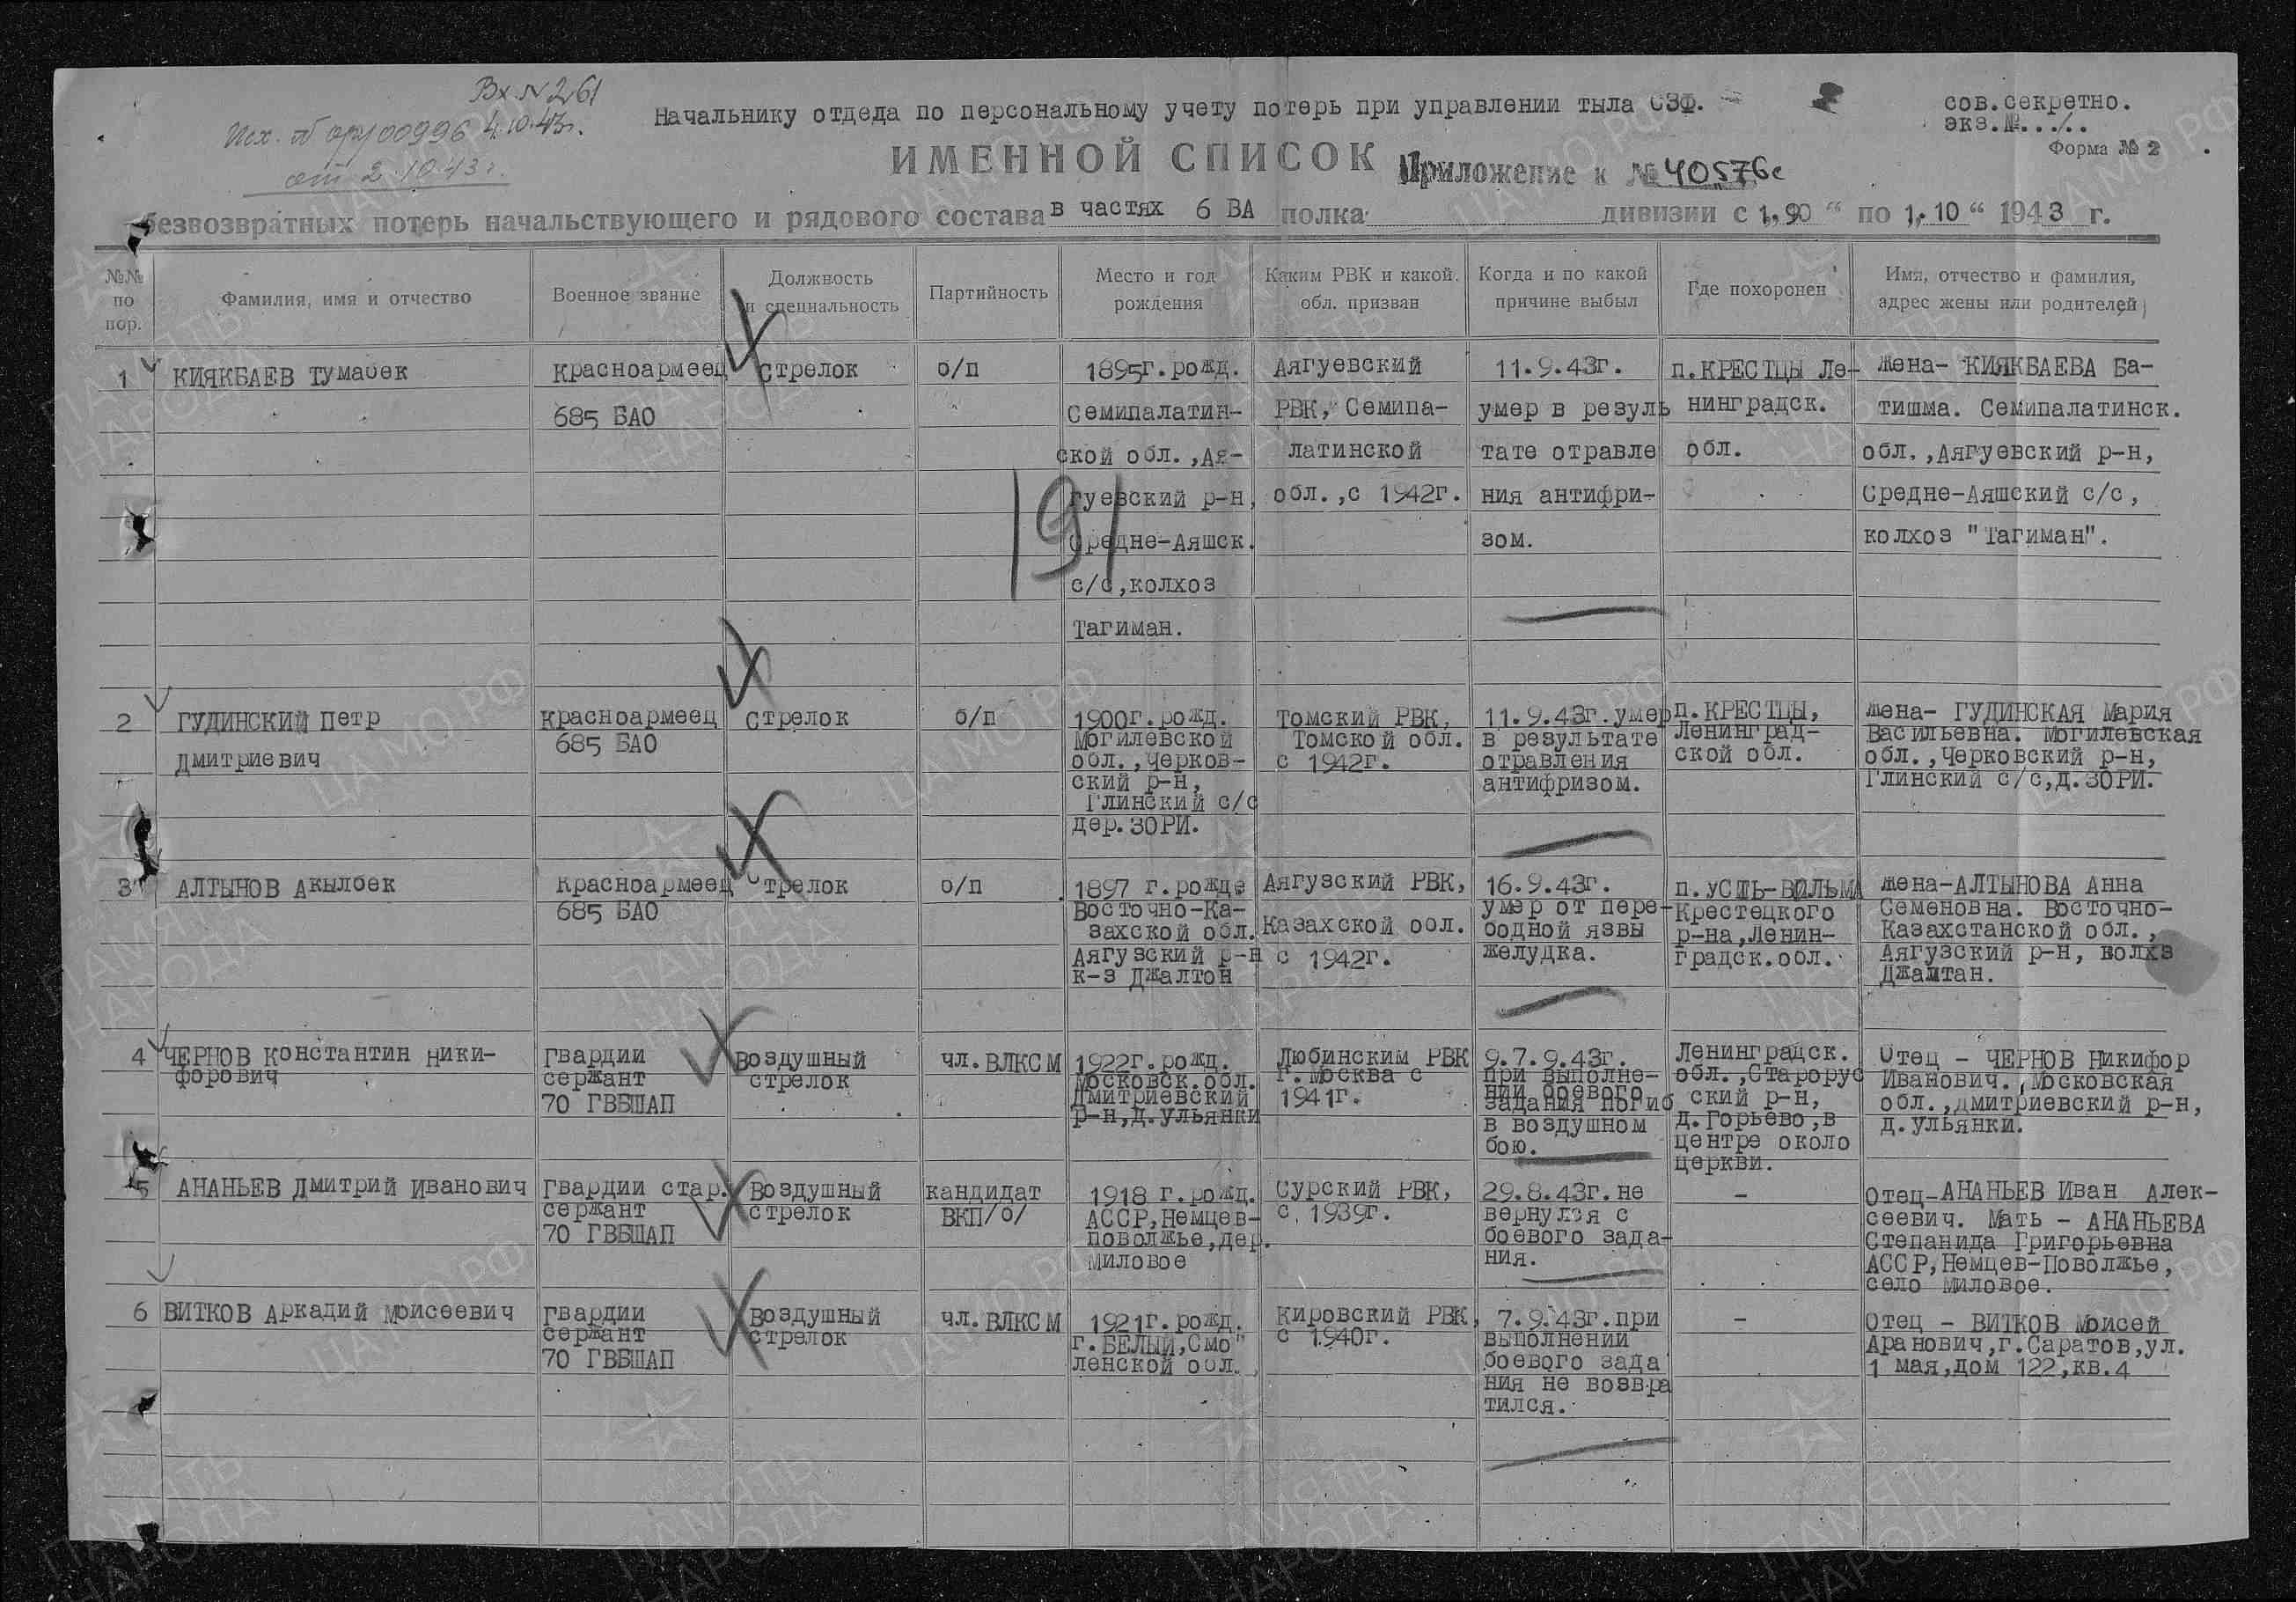 Вх. № 261
4.10.43г.
Исх. № орг/00996
от 2.10.43 г.
Начальнику отдела по персональному учету потерь при управлении тыла СЗФ.
сов.секретно.
экз.№.../..
Форма № 2
ИМЕННОЙ СПИСОК
Приложение к № 40576с
безвозвратных потерь начальствующего и рядового состава в частях 6 ВА полка дивизии с 1,90 “ по 1,.10 “ 1943 г.
№№ по пор.
Фамилия, имя и отчество
Военное звание
Должность и специальность
Партийность
Место и год рождения
Каким РВК и какой. обл. призван
Когда и по какой причине выбыл
Где похоронен
Имя, отчество и фамилия, адрес жены или родителей
1
КИЯКБАЕВ Тумабек
Красноармеец
685 БАО
Стрелок
б/п
1895г.рожд.
Семипалатин-
ской обл.,Ая-
гуевский р-н,
Средне-Аяшск.
с/с,колхоз
Тагиман.
Аягуевский
РВК, Семипа-
латинской
обл.,с 1942г.
11.9.43г.
умер в резуль
тате отравле
ния антифри-
зом.
п.КРЕСТЦЫ Ле-
нинградск.
обл.
жена- КИЯКБАЕВА Ба-
тишма. Семипалатинск.
обл.,Аягуевский р-н,
Средне-Аяшский с/с,
колхоз "Тагиман".
2
ГУДИНСКИЙ Петр
Дмитриевич
Красноармеец
685 БАО
Стрелок
б/п
1900г.рожд.
Могилевской
обл.,Черков-
ский р-н,
Глинский с/с
дер.ЗОРИ.
Томский РВК,
Томской обл.
с 1942г.
11.9.43г.умер
в результате
отравления
антифризом.
п.КРЕСТЦЫ,
Ленинград-
ской обл.
жена- ГУДИНСКАЯ Мария
Васильевна. Могилевская
обл.,Черковский р-н,
Глинский с/с,д.ЗОРИ.
3
АЛТЫНОВ Акылбек
Красноармеец
685 БАО
Стрелок
б/п
1897 г.рожде
Восточно-Ка-
захской обл.
Аягузский р-н
к-з Джалтон
Аягузский РВК,
Казахской обл.
с 1942г.
16.9.43г.
умер от пере-
бодной язвы
желудка.
п.УСТЬ-ВИЛЬМА
Крестецкого
р-на,Ленин-
градск.обл.
жена-АЛТЫНОВА Анна
Семеновна. Восточно-
Казахстанской обл.,
Аягузский р-н, колхз
Джамтан.
4
ЧЕРНОВ Константин Ники-
форович
Гвардии
сержант
70 ГВБШАП
Воздушный
стрелок
чл.ВЛКСМ
1922г.рожд.
Московск.обл.
Дмитриевский
р-н,д.Ульянки
Любинским РВК
г. Москва с
1941г.
9.7.9.43г.
при выполне-
нии боевого
задания погиб
в воздушном
бою.
Ленинградск.
обл.,Старорус
ский р-н,
д.Горьево,в
центре около
церкви.
Отец - ЧЕРНОВ Никифор
Иванович. Московская
обл.,Дмитриевский р-н,
д.Ульянки.
5
АНАНЬЕВ Дмитрий Иванович
Гвардии стар.
сержант
70 ГВБШАП
Воздушный
стрелок
кандидат
ВКП/б/
1918 г.рожд.
АССР,Немцев-
поволжье,дер.
Миловое
Сурский РВК,
с 1939г.
29.8.43г.не
вернулся с
боевого зада-
ния.
-
Отец-АНАНЬЕВ Иван Алек-
сеевич. Мать - АНАНЬЕВА
Степанида Григорьевна
АССР,Немцев-Поволжье,
село Миловое.
6
ВИТКОВ Аркадий Моисеевич
Гвардии
сержант
70 ГВБШАП
Воздушный
стрелок
чл.ВЛКСМ
1921г.рожд.
г.БЕЛЫЙ,Смо"
ленской обл.,
Кировский РВК,
с 1940г.
7.9.43г.при
выполнении
боевого зада
ния не возвра
тился.
-
Отец - ВИТКОВ Моисей
Аранович,г.Саратов,ул.
1 мая,дом 122,кв.4
191